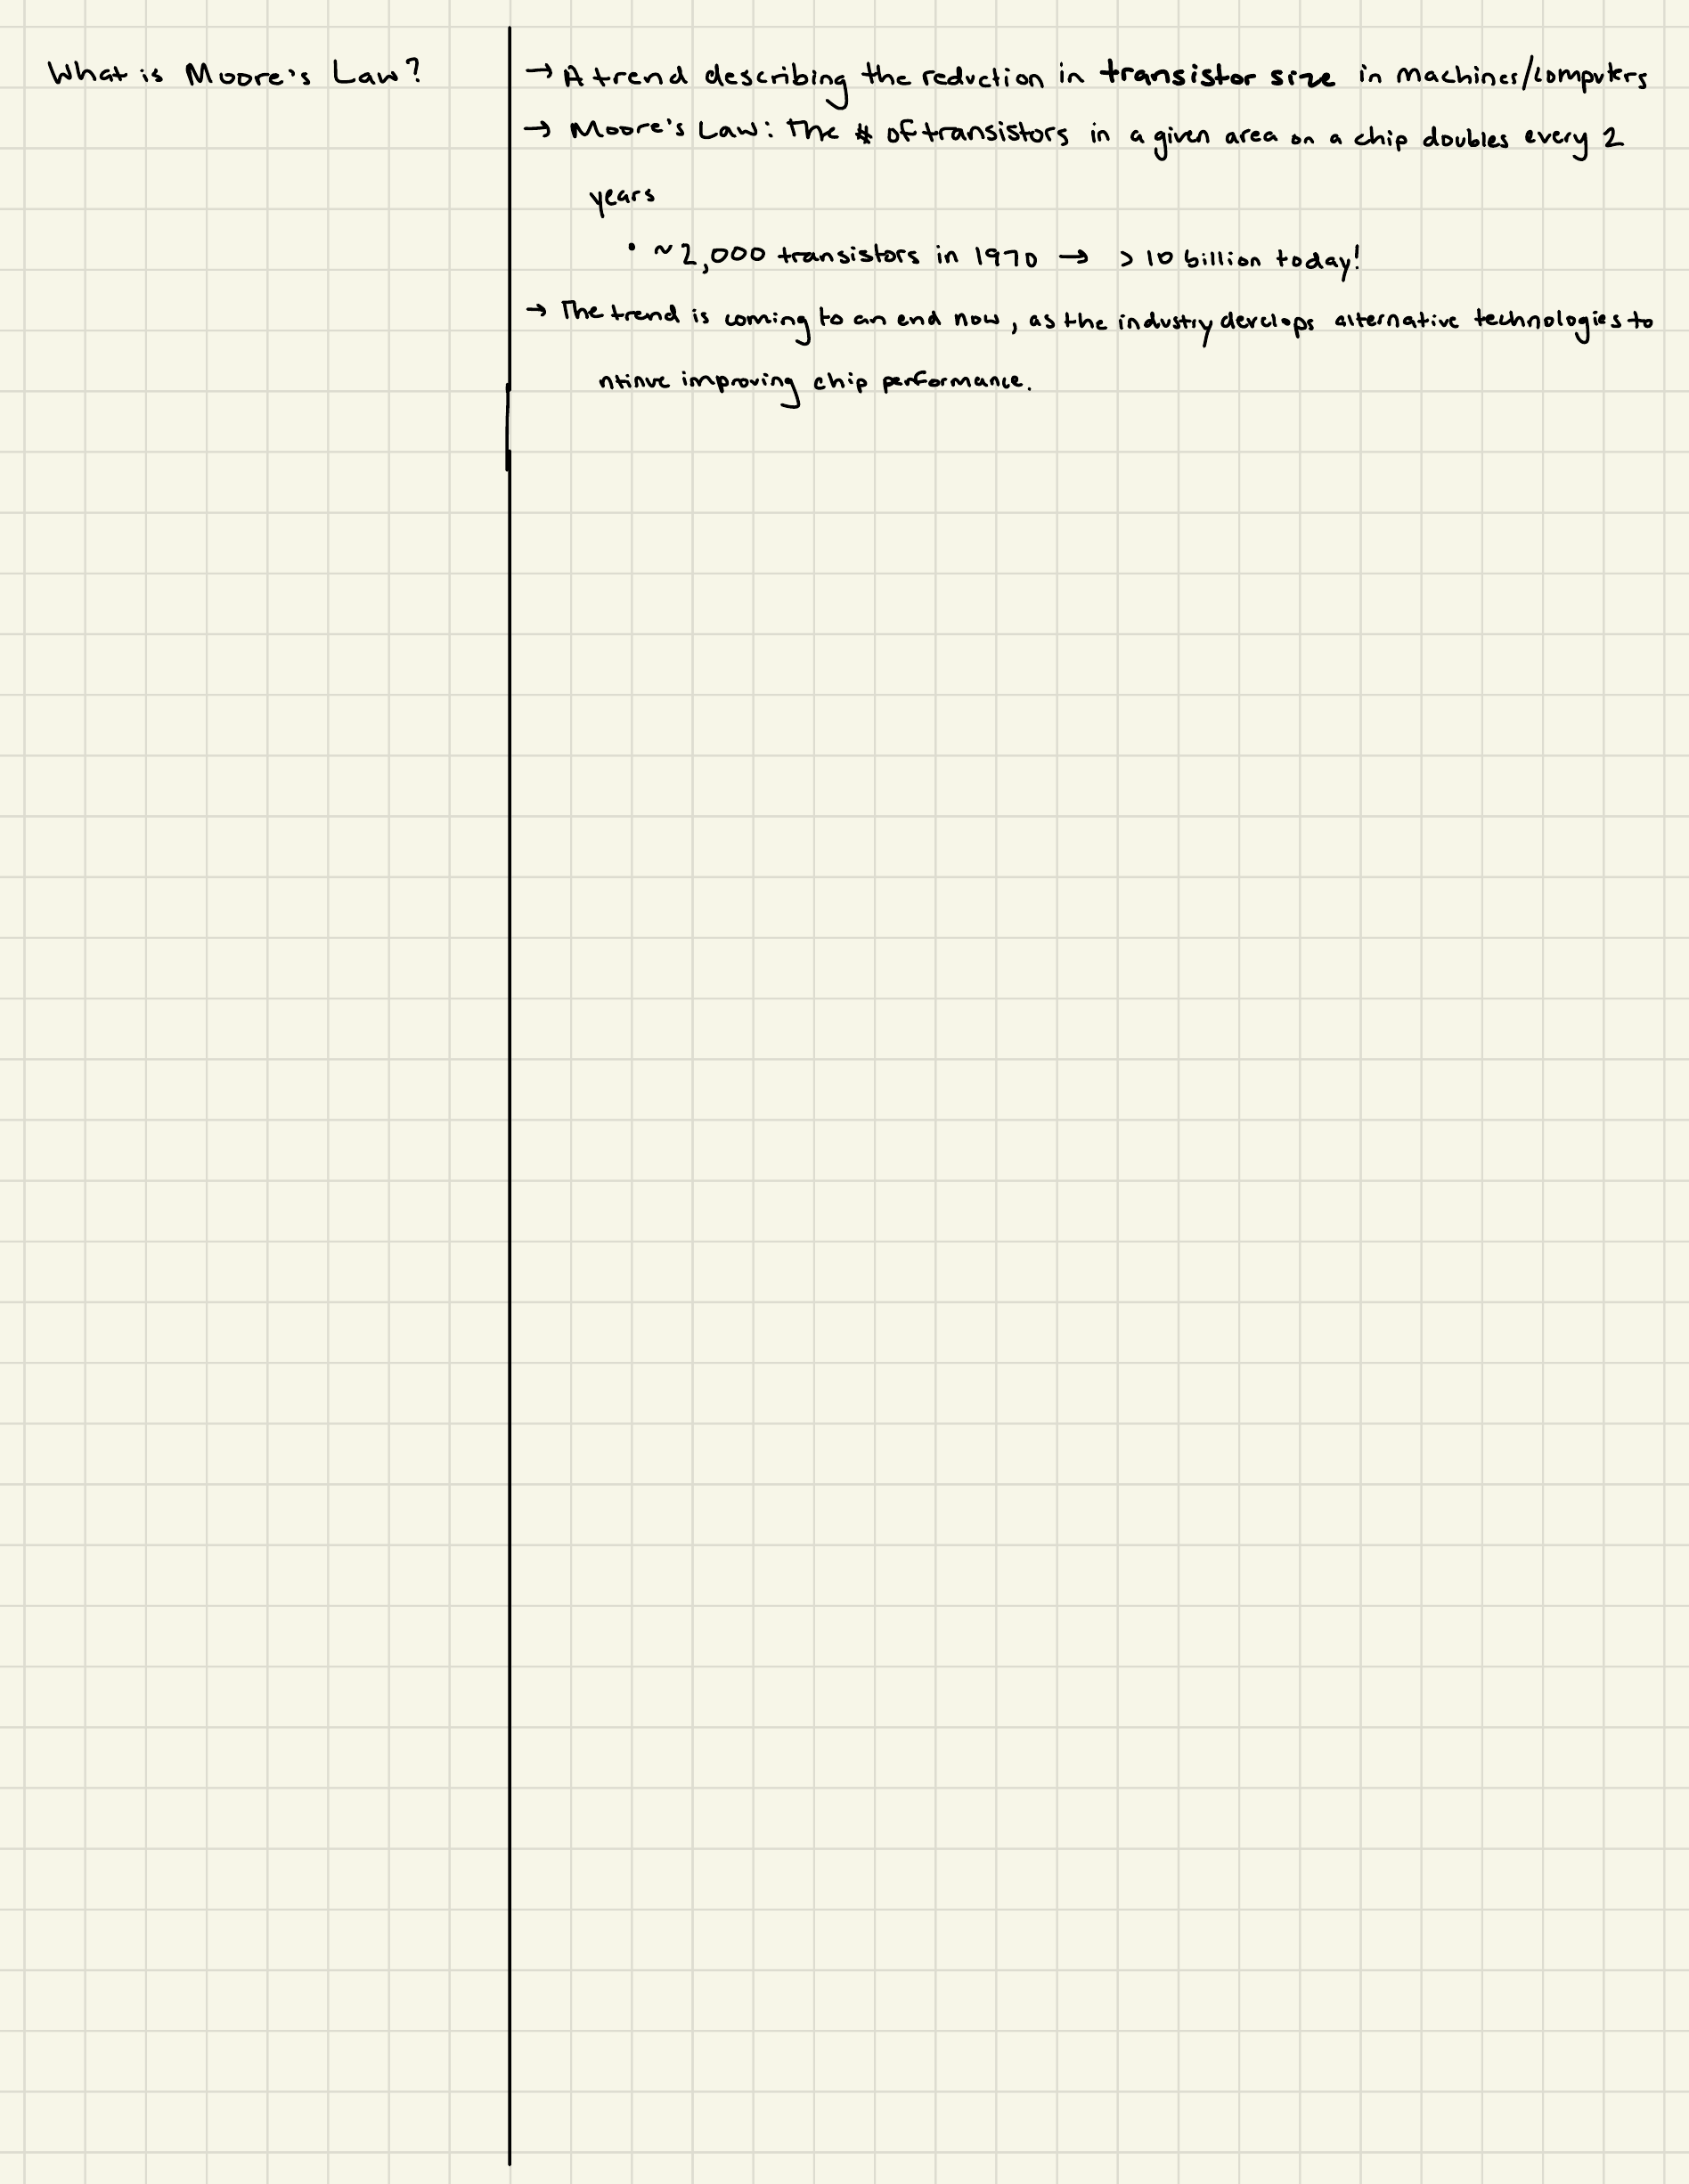 What is Moore's Law?
→ A trend describing the reduction in transistor size in machines/computers
→ Moore's Law: The # of transistors in a given area on a chip doubles every 2
years
• ~2,000 transistors in 1970 → >10 billion today!
→ The trend is coming to an end now, as the industry develops alternative technologies to
ntinue improving chip performance.